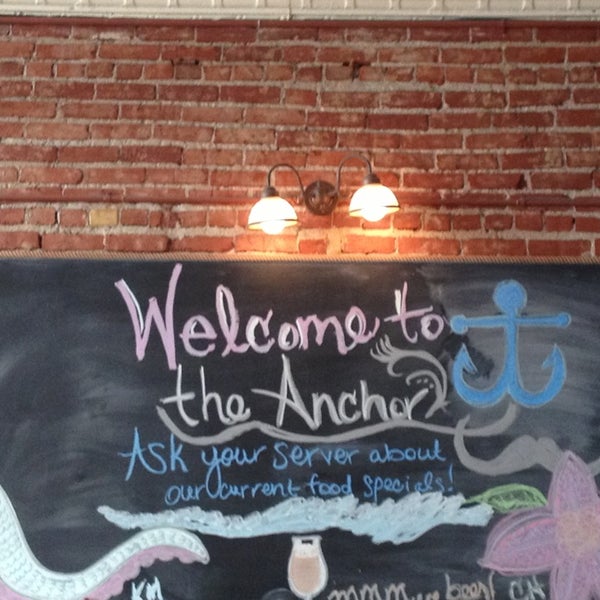 Welcome to
the Anchor
Ask your server about
our current food specials!
KM
mmm... beer! CH